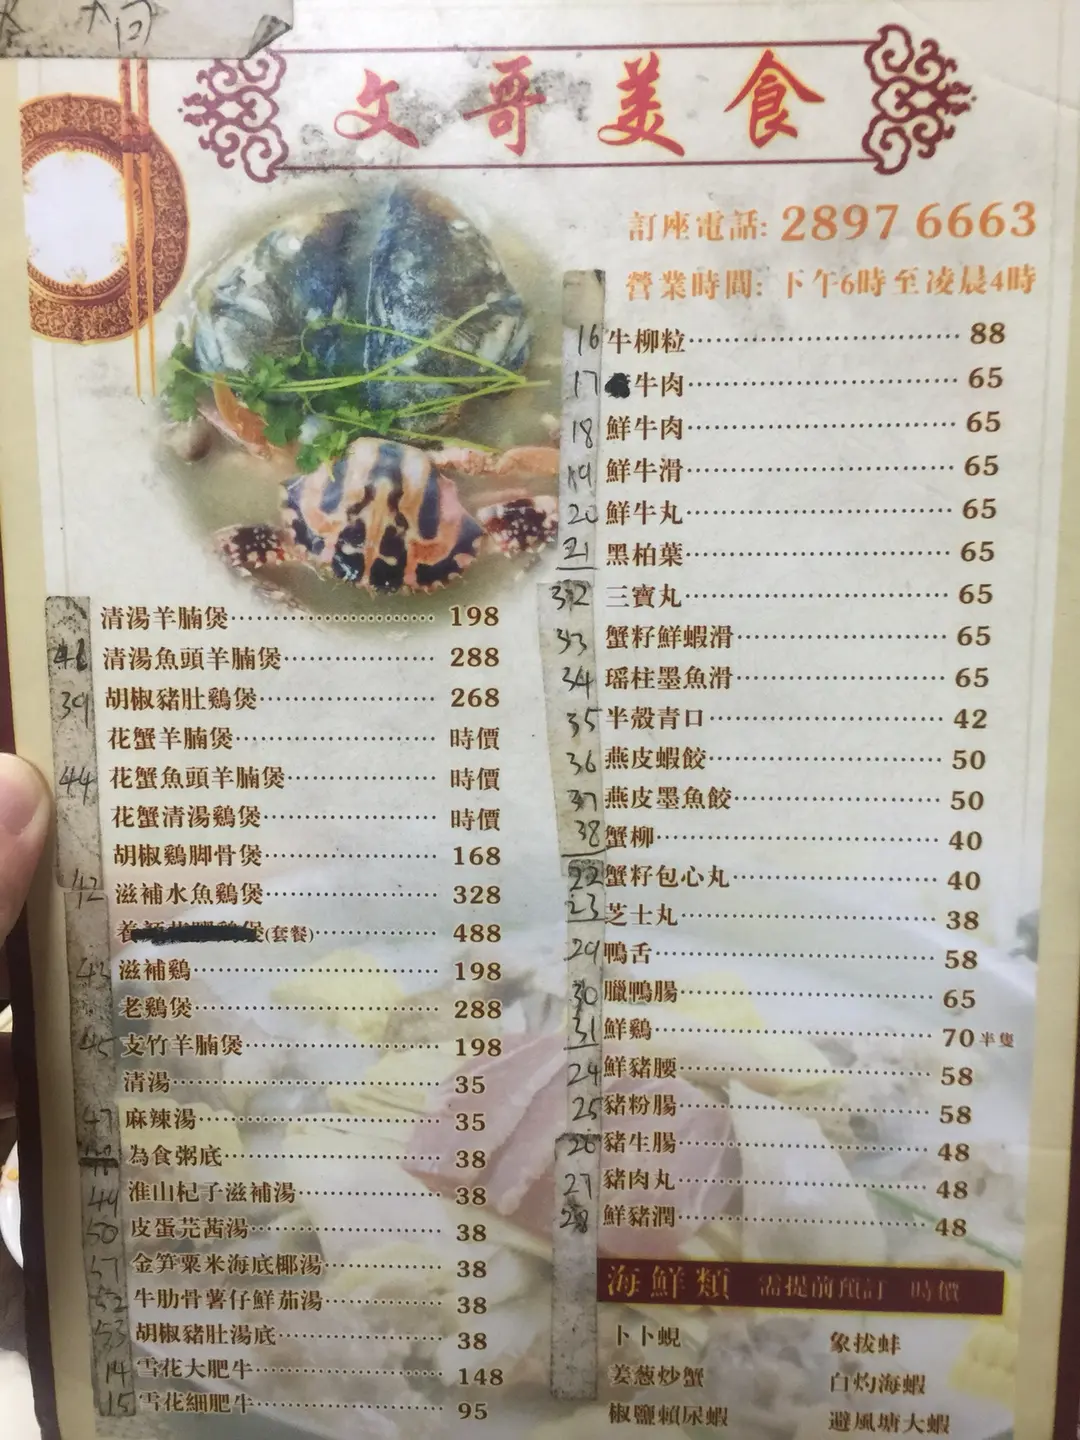 文哥美食
訂座電話: 2897 6663
營業時間: 下午6時至凌晨4時
清湯羊腩煲 198
清湯魚頭羊腩煲 288
39 胡椒豬肚鷄煲 268
花蟹羊腩煲 時價
44 花蟹魚頭羊腩煲 時價
花蟹清湯鷄煲 時價
胡椒鷄脚骨煲 168
42 滋補水魚鷄煲 328
煲(套餐) 488
43 滋補鷄 198
老鷄煲 288
45 支竹羊腩煲 198
清湯 35
47 麻辣湯 35
為食粥底 38
49 淮山杞子滋補湯 38
50 皮蛋芫茜湯 38
金笋粟米海底椰湯 38
52 牛肋骨薯仔鮮茄湯 38
53 胡椒豬肚湯底 38
14 雪花大肥牛 148
15 雪花細肥牛 95
16 牛柳粒 88
17 牛肉 65
18 鮮牛肉 65
19 鮮牛滑 65
20 鮮牛丸 65
21 黑柏葉 65
32 三寶丸 65
33 蟹籽鮮蝦滑 65
34 瑶柱墨魚滑 65
35 半殼青口 42
36 燕皮蝦餃 50
37 燕皮墨魚餃 50
38 蟹柳 40
22 蟹籽包心丸 40
23 芝士丸 38
29 鴨舌 58
30 臘鴨腸 65
31 鮮鷄 70 半隻
24 鮮豬腰 58
25 豬粉腸 58
26 豬生腸 48
27 豬肉丸 48
28 鮮豬潤 48
海鮮類 需提前預訂 時價
卜卜蜆 象拔蚌
姜葱炒蟹 白灼海蝦
椒鹽賴尿蝦 避風塘大蝦